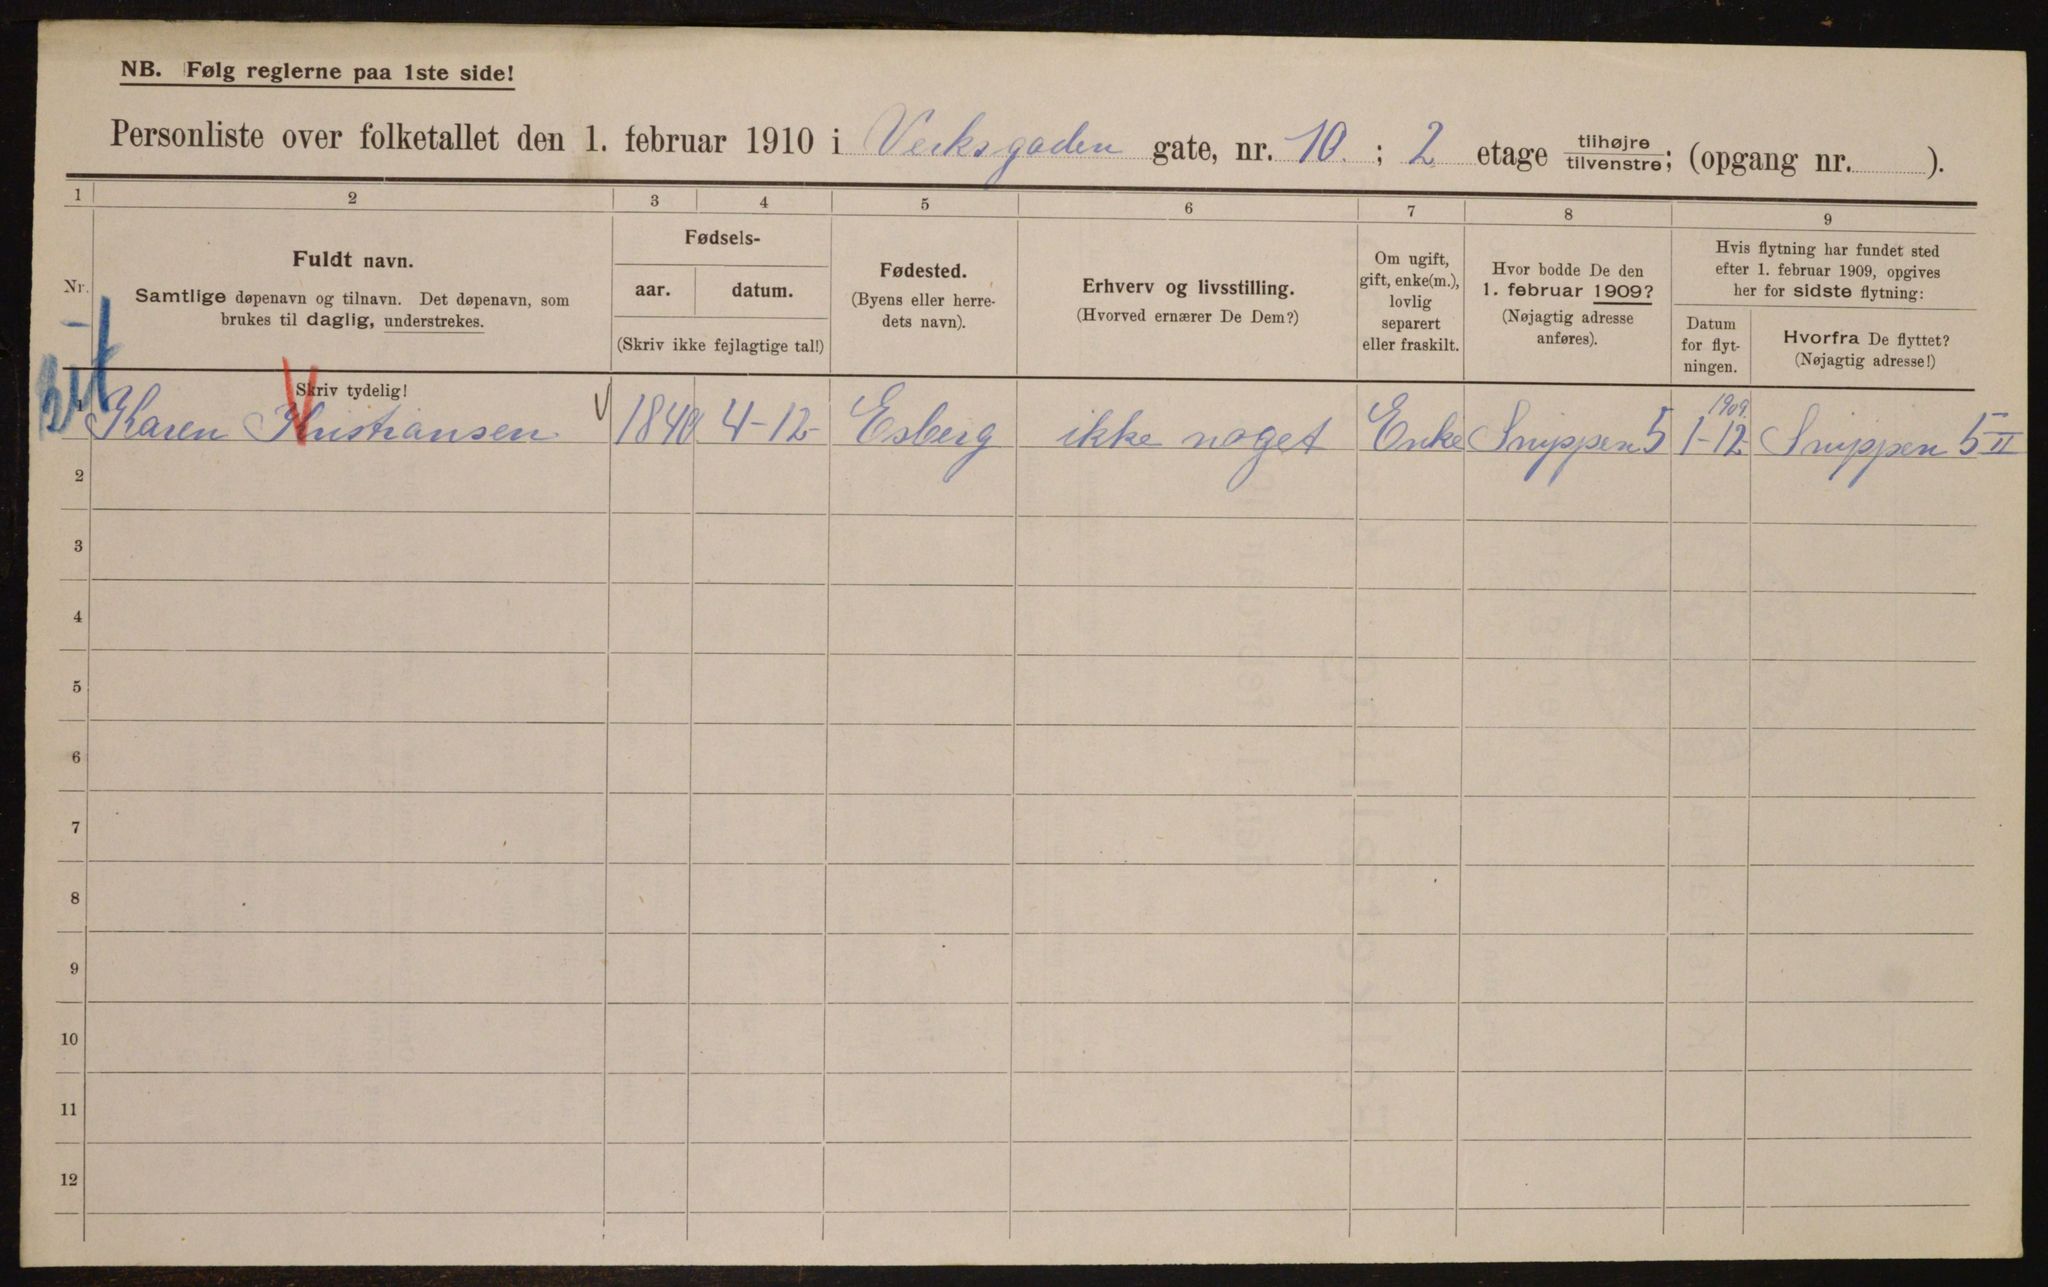 NB. Følg reglerne paa 1ste side!
Personliste over folketallet den 1. februar 1910 i Verksgaden gate, nr. 10. ; 2 etage tilhøjre/tilvenstre; (opgang nr. ).
1 2 3 4 5 6 7 8 9
Nr.
Fuldt navn.
Samtlige døpenavn og tilnavn. Det døpenavn, som
brukes til daglig, understrekes.
Skriv tydelig!
Fødsels-
aar. datum.
(Skriv ikke fejlagtige tal!)
Fødested.
(Byens eller herre-
dets navn).
Erhverv og livsstilling.
(Hvorved ernærer De Dem?)
Om ugift,
gift, enke(m.),
lovlig
separert
eller fraskilt.
Hvor bodde De den
1. februar 1909?
(Nøjagtig adresse
anføres).
Hvis flytning har fundet sted
efter 1. februar 1909, opgives
her for sidste flytning:
Datum
for flyt-
ningen.
Hvorfra De flyttet?
(Nøjagtig adresse!)
1909.
1 Karen Kristiansen 1840 4-12- Esberg ikke noget Enke Snippen 5 1-12- Snippen 5 II
2
3
4
5
6
7
8
9
10
11
12